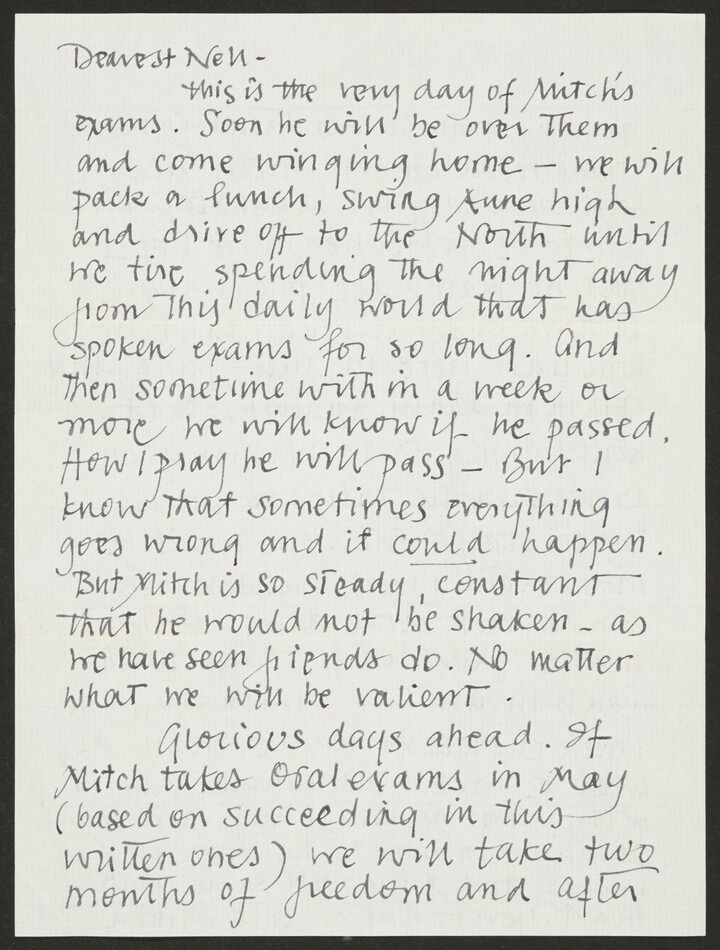 Dearest Nell -
this is the very day of Mitch's
exams. Soon he will be over them
and come winging home – we will
pack a lunch, swing Aune high
and drive off to the North until
we tire spending the night away
from this daily world that has
spoken exams for so long. And
then sometime within a week or
more we will know if he passed.
How I pray he will pass – But I
know that sometimes everything
goes wrong and it could happen.
But Mitch is so steady, constant
that he would not be shaken - as
we have seen friends do. No matter
what we will be valient.
Glorious days ahead. If
Mitch takes Oral exams in May
(based on succeeding in this
written ones) we will take two
months of freedom and after